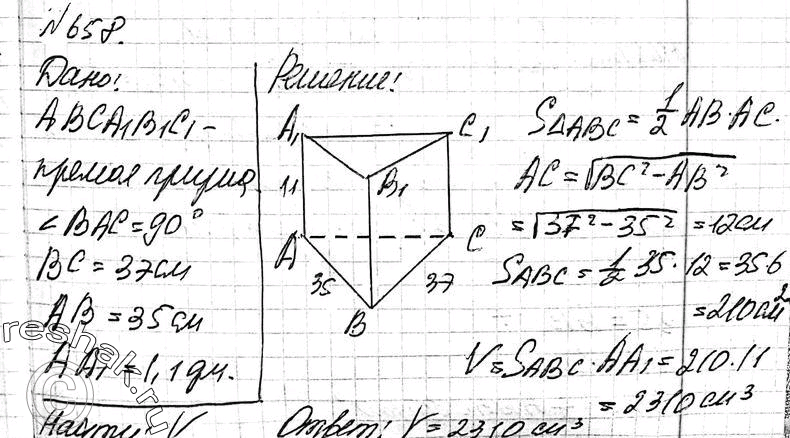 №658.
Дано:
ABCA₁B₁C₁ –
прямая призма
∠BAC = 90°
BC = 37см
AB = 35см
AA₁ = 1,1 дм.
Найти: V
Решение:
A₁
C₁
B₁
11
A
C
35
37
B
S△ABC = 1/2 AB · AC.
AC = √BC² – AB²
= √37² – 35² = 12см
SABC = 1/2 35 · 12 = 35 6
= 210см²
V = SABC · AA₁ = 210 · 11
= 2310 см³
Ответ: V = 2310 см³
reshak.ru
©